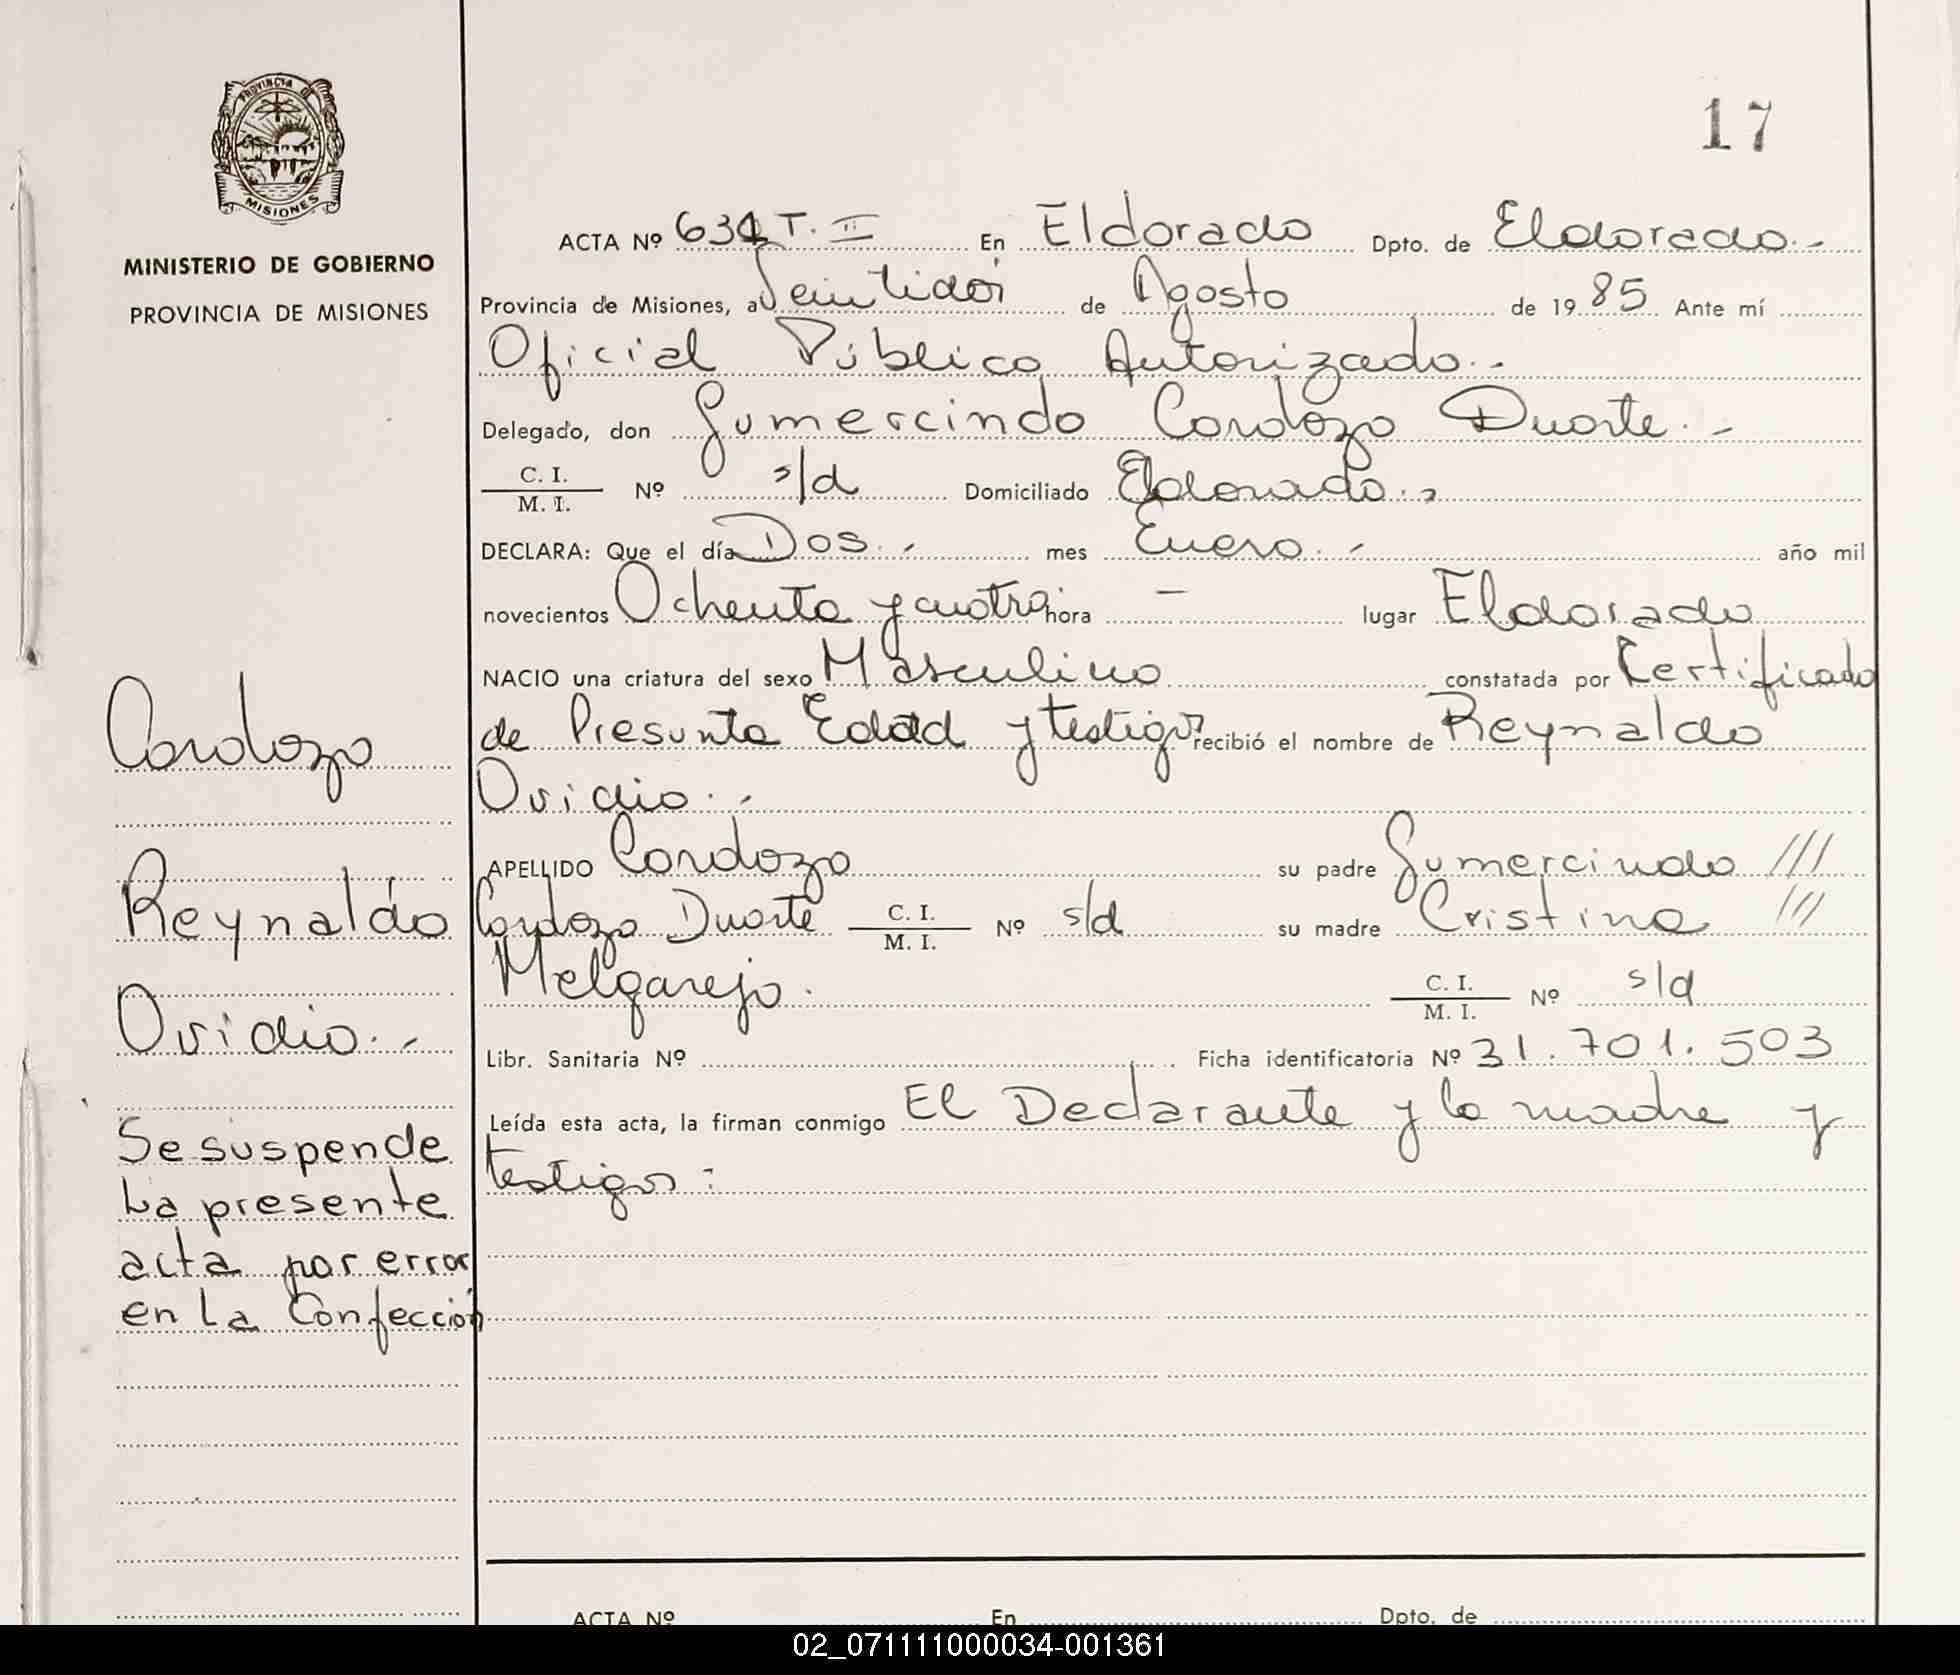 PROVINCIA DE
MISIONES
MINISTERIO DE GOBIERNO
PROVINCIA DE MISIONES
Cordozo
Reynaldo
Ovidio.-
Se suspende
La presente
acta por error
en La Confección
17
ACTA Nº 634 T. II En Eldorado Dpto. de Eldorado.-
Provincia de Misiones, a Veintidós de Agosto de 19 85 Ante mí
Oficial Público Autorizado.-
Delegado, don Gumercindo Cordozo Duarte.-
C. I. / M. I. Nº s/d Domiciliado Eldorado.-
DECLARA: Que el día Dos.- mes Enero.- año mil
novecientos Ochenta y cuatro hora - lugar Eldorado
NACIO una criatura del sexo Masculino constatada por Certificado
de Presunta Edad y testigos recibió el nombre de Reynaldo
Ovidio.-
APELLIDO Cordozo su padre Gumercindo ///
Cordozo Duarte C. I. / M. I. Nº s/d su madre Cristina ///
Melgarejo. C. I. / M. I. Nº s/d
Libr. Sanitaria Nº Ficha identificatoria Nº 31.701.503
Leída esta acta, la firman conmigo El Declarante y la madre y
testigos:
ACTA Nº En Dpto. de
02_071111000034-001361